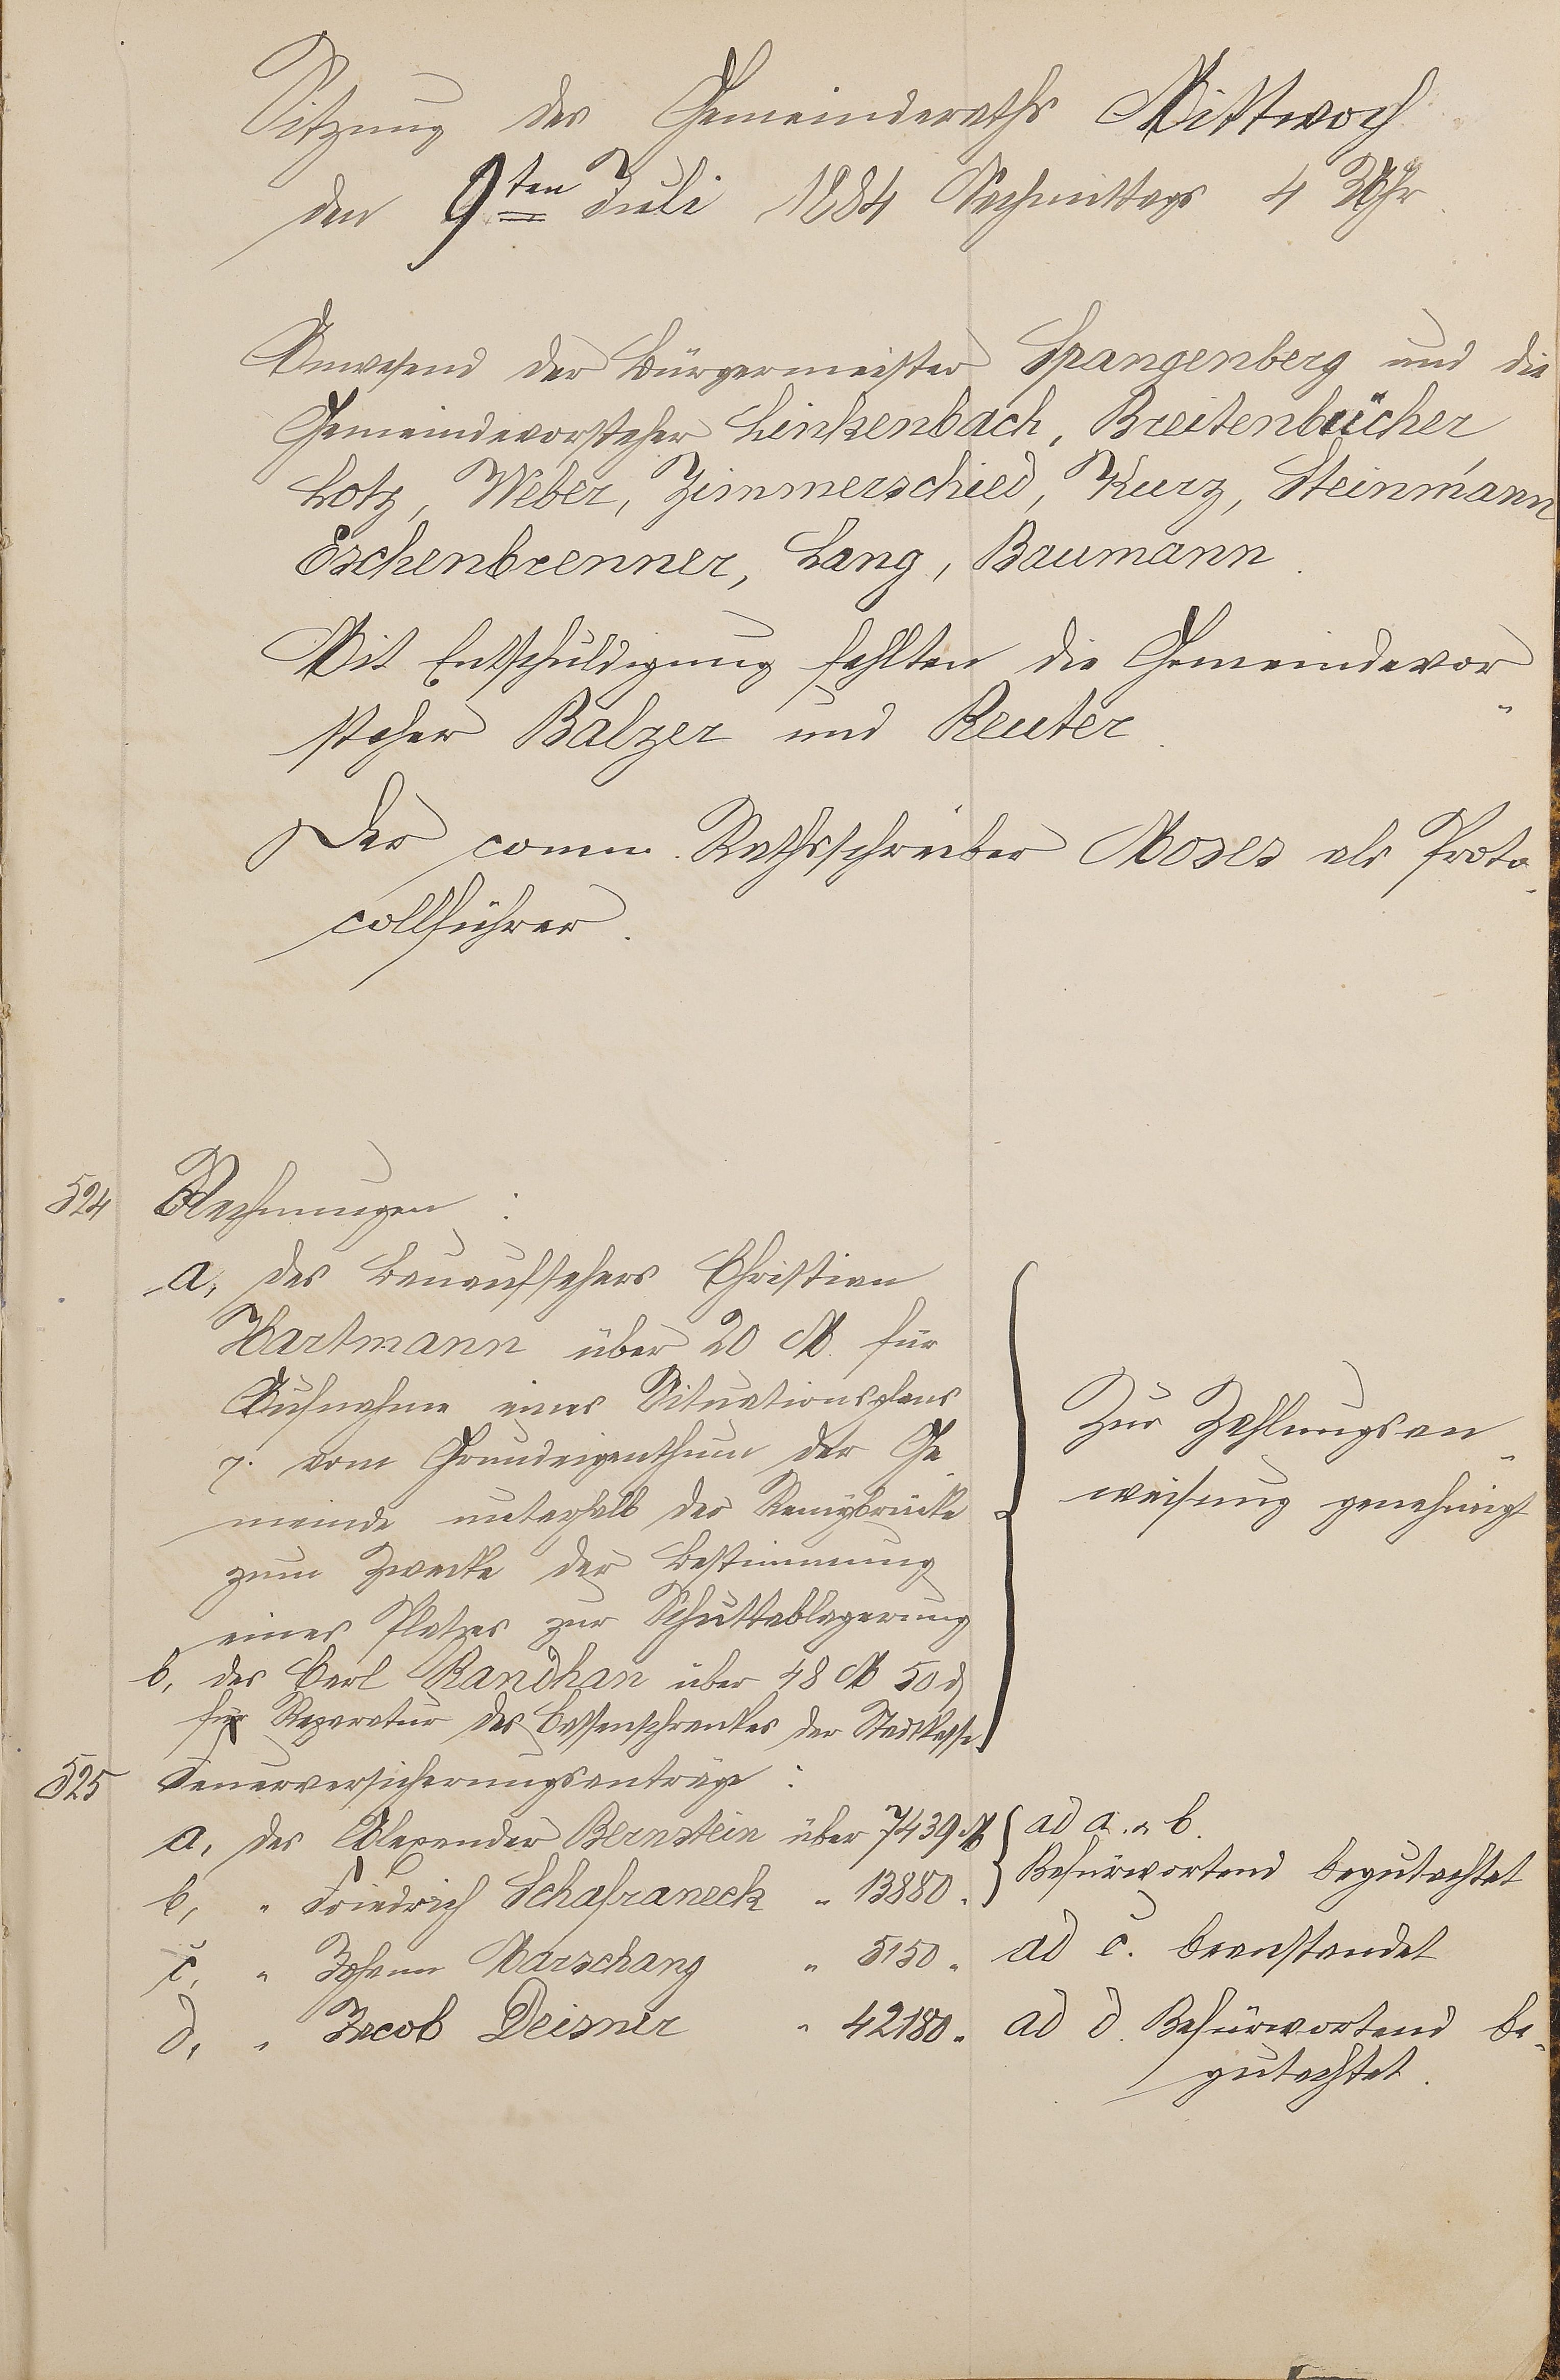 Sitzung des Gemeinderaths Mittwoch
den 9ten Juli 1884 Nachmittags 4 Uhr
Anwesend der Bürgermeister Spangenberg und die
Gemeindevorsteher Linkenbach, Breitenbücher
Lotz, Weber, Zimmerschied, Kurz, Steinmann
Eschenbrenner, Lang, Baumann.
Mit Entschuldigung fehlten die Gemeindevor
steher Balzer und Reuter.
Der comm. Rathsschreiber Moses als Proto-
collführer.
524 Rechnungen:
a, des Bauaufsehers Christian
Hartmann über 20 M. für
Aufnahme eines Situationsplans
p. vom Grundeigenthum der Ge-
meinde unterhalb der Remybrücke
zum Zwecke der Bestimmung
eines Platzes zur Schuttablagerung
b, des Carl Randhan über 48 M 50 d
für Reparatur des Cassenschrankes der Stadtkasse
Zur Zahlungsan-
weisung genehmigt
525 Feuerversicherungsanträge:
a, des Alexander Bernstein über 7439 M
b, " Friedrich Schafraneck " 13880 "
c, " Johann Marschang " 5150 "
d, " Jacob Deisner " 42180 "
ad a. u b.
Befürwortend begutachtet
ad c. beanstandet
ad d. Befürwortend be-
gutachtet.